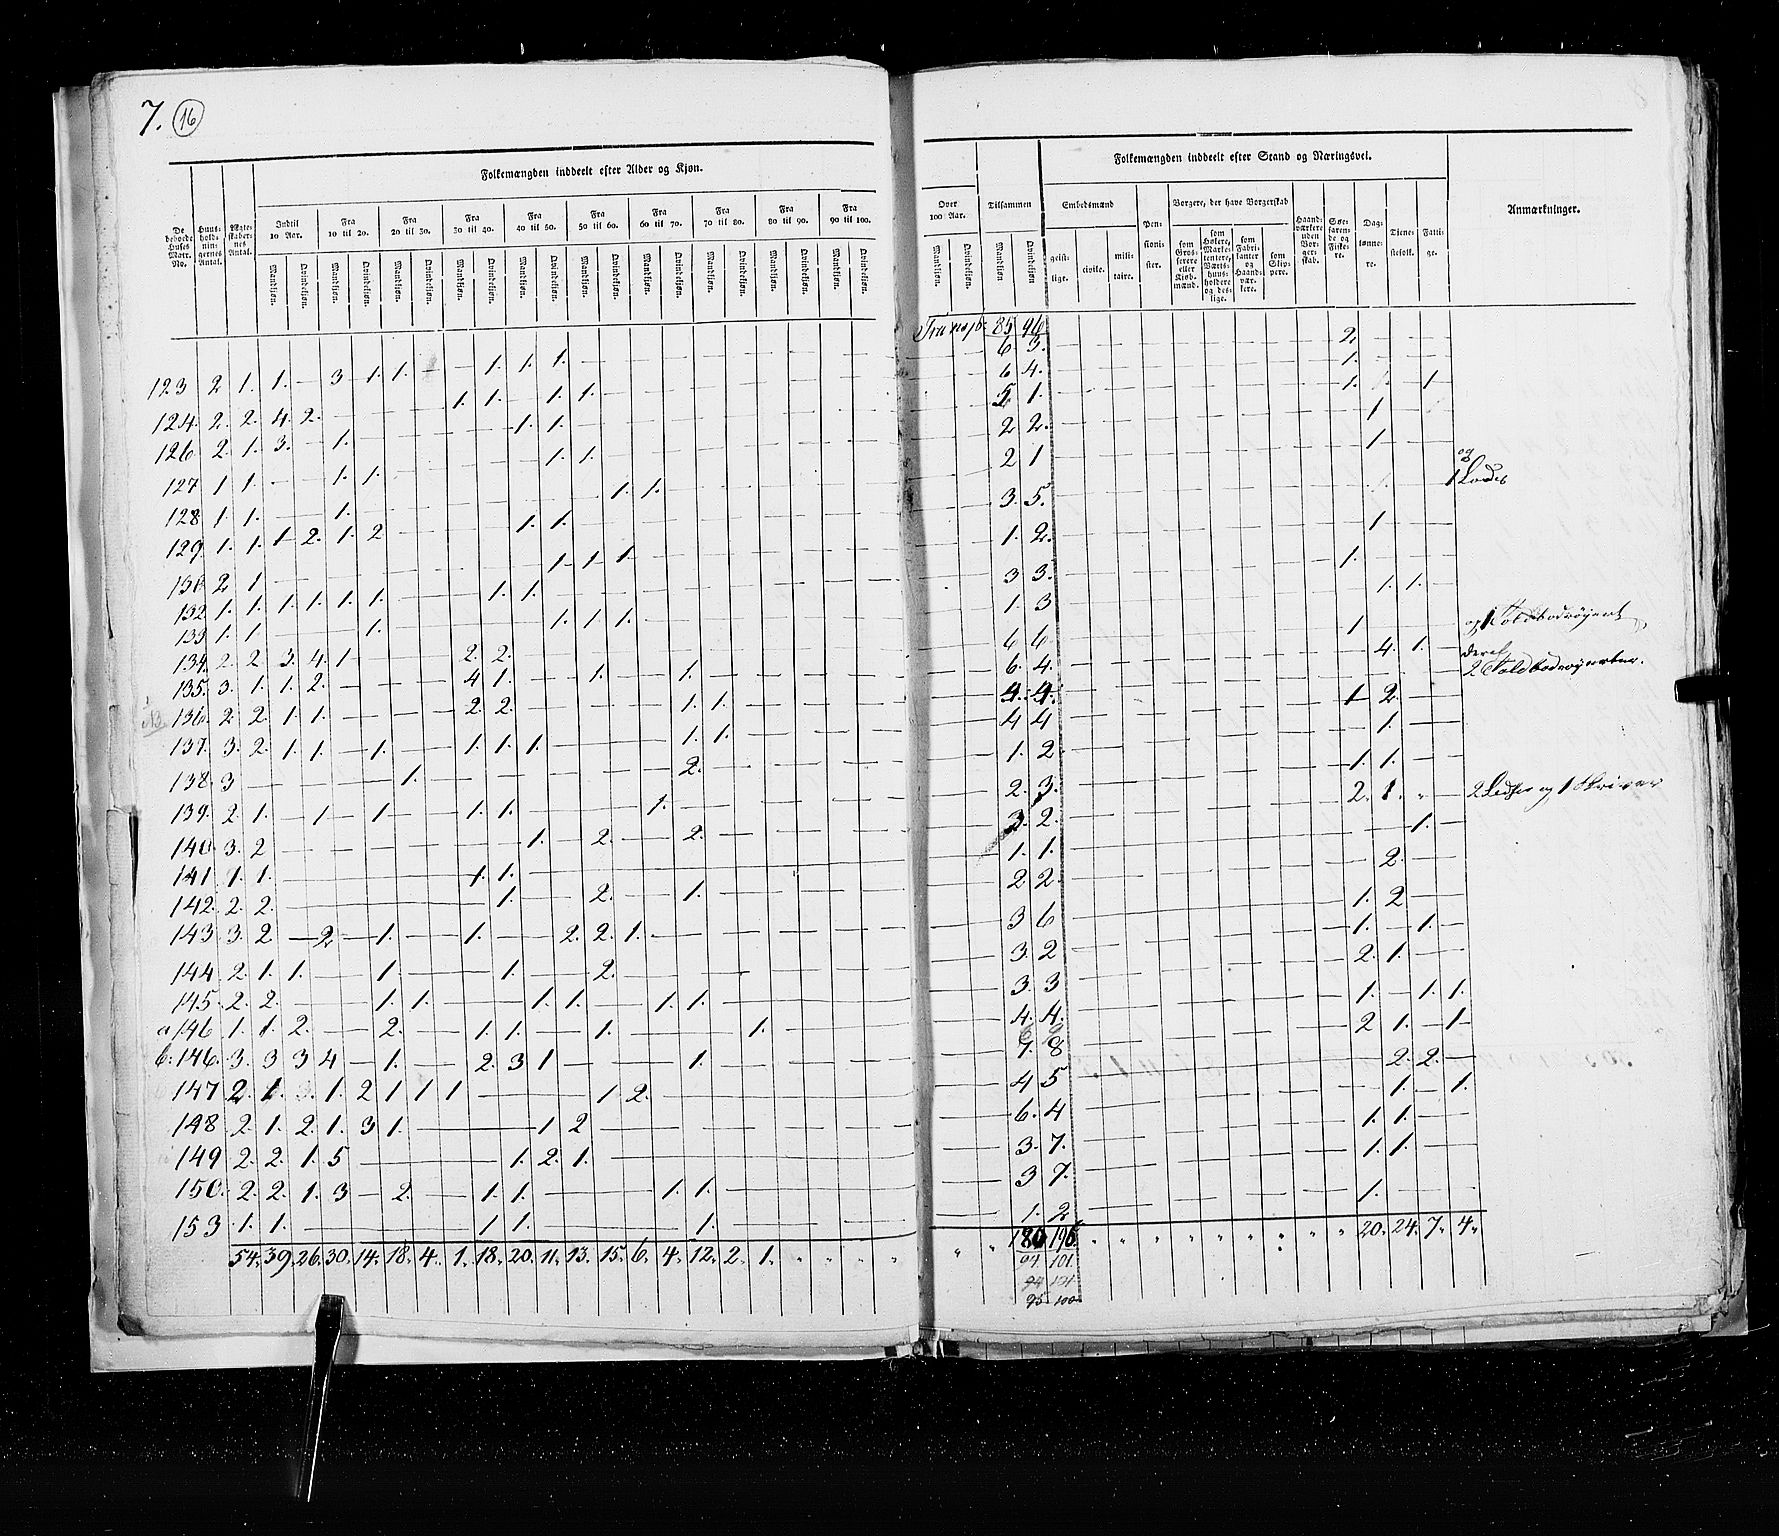 7. (16)
Folkemængden inddeelt efter Alder og Kjøn.
De beboede Huses Matr. No.
Huus-hold-nin-gernes Antal.
Ægte-skaber-nes Antal.
Indtil 10 Aar.
Fra 10 til 20.
Fra 20 til 30.
Fra 30 til 40.
Fra 40 til 50.
Fra 50 til 60.
Fra 60 til 70.
Fra 70 til 80.
Fra 80 til 90.
Fra 90 til 100.
Mandkjøn. Qvindekjøn. Mandkjøn. Qvindekjøn. Mandkjøn. Qvindekjøn. Mandkjøn. Qvindekjøn. Mandkjøn. Qvindekjøn. Mandkjøn. Qvindekjøn. Mandkjøn. Qvindekjøn. Mandkjøn. Qvindekjøn. Mandkjøn. Qvindekjøn. Mandkjøn. Qvindekjøn.
123 2 1. 1. — 3 1. 1. — — 1. 1. 1.
124. 2. 2. 4. 2. — — — — 1. 1. — 1. 1.
126 2. 1. 3. — 1. — — — — — 1. 1.
127 1 1. — — 1. 1. — — — — — 1. 1.
128 1. 1. — — 1. — — — — — — — — 1. 1.
129. 1. 1. 1 2. 1. 2 — — — — 1. 1.
130 2 1 — — — — — — — — — 1. 1 1.
132. 1. 1. 1. 1. 1. 1. — — — 1. 1.
133 1. 1. — — — 1. — — — — — 1. 1. 1.
134. 2. 2. 3. 4. 1 — — — 2. 2.
135. 3. 1. 1. 2. — — — — 4 1. — — 1. — — 1.
136. 2. 2. 1. 1. — — — — 2. 2. — — — — — 1. 1.
137. 3. 2. 1. 1. — 1. — — 1. 1. 1. — — — — 1. 1.
138. 3 — — — — — 1. — — — — — — — — 2.
139. 2. 1. — 1. — 1. — — 1. 1. — — — — 1.
140. 3. 2 — — — — — — — — 1. — 2. — — 2.
141 1. 1. — — — — — — 1. 1.
142. 2. 2. — — — — — — — 1. — — 2. — — 1.
143 3. 2 — 2 — 1. — — 1. — — 2. 2. 1.
144 2. 1. 1. — — 1. — — — 1. — — 2.
145 2. 2. — — — 1. 1. — — — 1. 1. — — 1. 1.
a 146 1. 1. 2. — — 2. — — 1. 1. — — 1. — — — — 1.
b. 146. 3. 3 3 4 — 1. — — 2. 3 1 — — — — 1.
147 2. 1. 3. 1. 2 1 1 1 — — — — 1 2.
148 2. 1. 2. 1. 3 1. — — — — 1 2
149 2. 2. 1. 5 — — — — — 1. 2. 1.
150. 2. 2. 1. 3 — 2. — — 1. 1. — — — — 1. 1.
153 1. 1. — — — — — — 1 1. — — — — — 1.
54. 39. 26. 30. 14. 18. 4. 1. 18. 20. 11. 13. 15. 6. 4. 12. 2. 1. " " " "
Folkemængden inddeelt efter Stand og Næringsvei.
Over 100 Aar.
Tilsammen
Embedsmænd
Pen-sioni-ster.
Borgere, der have Borgerskab
Haand-værkere uden Bor-ger-skab.
Søe-faren-de og Fiske-re.
Dag-lønne-re.
Tjene-stefolk.
Fatti-ge.
Anmærkninger.
Mandkjøn. Qvindekjøn. Mandkjøn. Qvindekjøn.
geist-lige. civile. mili-taire.
som Gros-serere eller Kjøb-mænd.
som Høkere, Marke-tentere, Værts-huus-holdere og des-lige.
som Fabri-kanter og Haand-vær-kere.
som Skip-pere.
Transp: 85 96
6 3. 2
6 4. 1.
5 1. 1. 1
2 2. 1
2 1 1
og
3. 5. 1
1. 2. 1
3 3. 1.
1. 3 1. 1.
6 6 1
6. 4. 4. 1.
2
4. 4. 1 2.
4 4 1.
1. 2 1. 1.
2. 3. 2. 1. "
2 og 1 Skriver
3. 2. 1.
1. 1. 2.
2 2. 1. 2
3 6 1. 1.
3. 2 2. 1.
3. 3 1. 1. 1.
4. 4. 2 1. 1
7. 8 2. 2.
4 5 1. 1.
6. 4 1. 1.
3. 7. 1. 1.
3 7. 1.
1. 2
180 196. " " " " " " " " " 20. 24. 7. 4.
94 101.
94 101
95 100